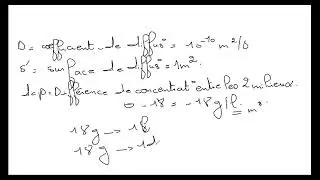 D = coefficient de diffus° = 10^-10 m²/s
S = surface de diffus° = 1m².
dφ = Différence de concentrat° entre les 2 milieux.
0 - 18 = -18g/l. m³
18g → 1l
18g → 1d